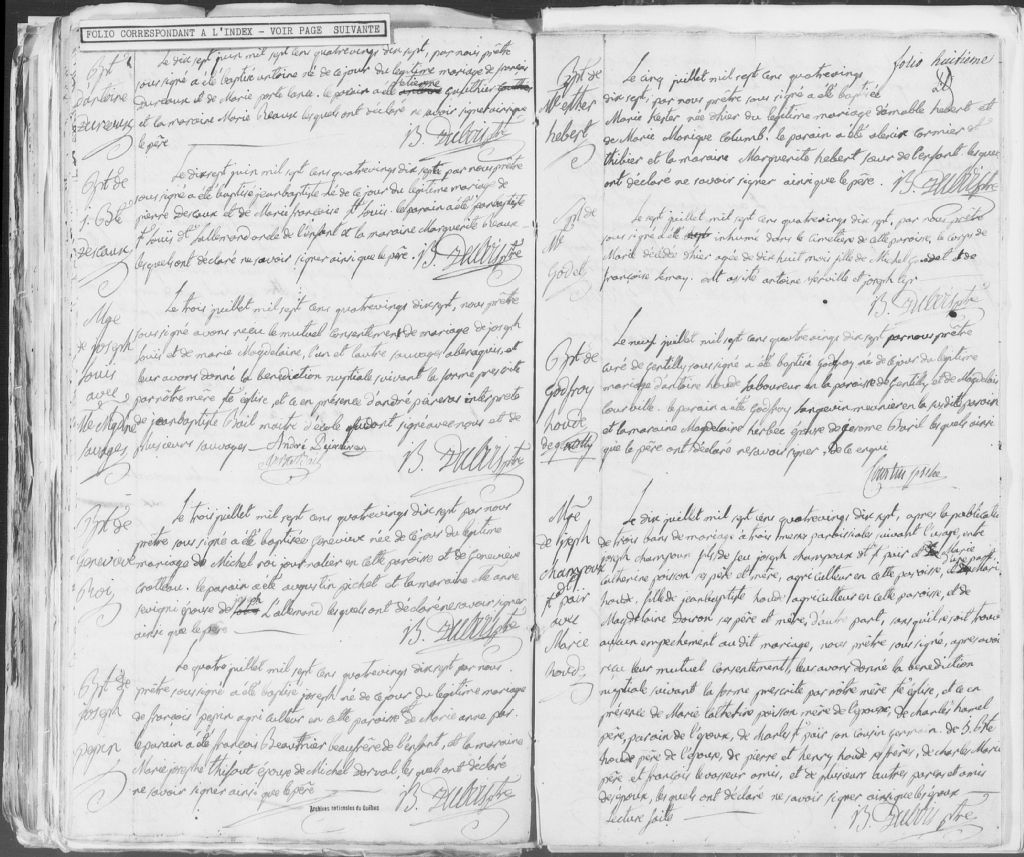 FOLIO CORRESPONDANT A L'INDEX - VOIR PAGE SUIVANTE
Bpt
antoine
Le dix sept juin mil sept cens quatrevings dix sept, par nous prêtre
sous signé a été baptisé antoine né de ce jour du legitime mariage de françois
et de Marie le parain a été etienne Gauthier
et la maraine Marie Beaux lesquels ont déclaré ne savoir signer ainsi que
le père
B. Dubois ptre
Bpt de
j. Bte
descaux
Le dix sept juin mil sept cens quatrevings dix sept par nous prêtre
sous signé a été baptisé jean baptiste né de ce jour du legitime mariage de
pierre descaux et de Marie françoise St Louis. le parain a été jean baptiste
St Louis dt Lallemand oncle de l'enfant et la maraine Marguerite Beaux
lesquels ont déclaré ne savoir signer ainsi que le père.
B. Dubois ptre
Mge
de joseph
Louis
avec
Me Magdne
sauvages
Le trois juillet mil sept cens quatrevings dix sept, nous prêtre
sous signé avons reçu le mutuel consentement de mariage de joseph
Louis et de marie Magdelaine, l'un et l'autre sauvages abenaquis, et
leur avons donné la benediction nuptiale suivant la forme prescrite
par notre mère ste église, et ce en présence d'andré interprete
de jean baptiste Bail maitre d'école qui ont signé avec nous et de
plusieurs sauvages
André
B. Dubois ptre
Bpt de
Genevieve
Roi
Le trois juillet mil sept cens quatrevings dix sept par nous
prêtre sous signé a été baptisée Genevieve née de ce jour du legitime
mariage de Michel roi journalier en cette paroisse et de Genevieve
croteau. le parain a été augustin pichet et la maraine Me anne
sevigni épouse de Lallemand lesquels ont déclaré ne savoir signer
ainsi que le père
B. Dubois ptre
Bpt de
joseph
pepin
Le quatre juillet mil sept cens quatrevings dix sept par nous
prêtre sous signé a été baptisé joseph né de ce jour du legitime mariage
de françois pepin agriculteur en cette paroisse et de Marie anne
le parain a été françois beaufrère de l'enfant, et la maraine
Marie josephe épouse de Michel dorval lesquels ont déclaré
ne savoir signer ainsi que le père
B. Dubois ptre
Archives nationales du Québec
folio huitième
Bpt de
Me esther
hebert
Le cinq juillet mil sept cens quatrevings
dix sept, par nous prêtre sous signé a été baptisée
Marie née d'hier du legitime mariage d'amable hebert et
de Marie Monique Columb. le parain a été alexis Cormier
et la maraine Marguerite hebert sœur de l'enfant. lesquels
ont déclaré ne savoir signer ainsi que le père.
B. Dubois ptre
Spt de
Me
Godel
Le sept juillet mil sept cens quatrevings dix sept, par nous prêtre
sous signé a été inhumé dans le cimetière de cette paroisse, le corps de
Marie décédée d'hier agée de dix huit mois fille de Michel Godel et de
françoise ont assisté antoine et joseph
B. Dubois ptre
Bpt de
Godfroy
houde
de gentilly
Le neuf juillet mil sept cens quatrevings dix sept par nous prêtre
curé de Gentilly soussigné a été baptisé Godfroy né de ce jour du legitime
mariage d'antoine houde laboureur en la paroisse de Gentilly, et de Magdelaine
Courville. le parain a été Godfroy Langevin meunier en la susdite paroisse
et la maraine Magdelaine herbec épouse de Jerome Baril lesquels ainsi
que le père ont déclaré ne savoir signer, de ce enquis
Mge
de joseph
champoux
dt
st pair
avec
Marie
houde
Le dix juillet mil sept cens quatrevings dix sept, après la publication
de trois bans de mariage à trois messes paroissiales suivant l'usage, entre
joseph champoux fils de feu joseph champoux dt st pair et de Marie
Catherine poisson ses père et mère, agriculteur en cette paroisse, d'une part, et Marie
houde, fille de jean baptiste houde agriculteur en cette paroisse, et de
Magdelaine Doiron ses père et mère, d'autre part, sans qu'il se soit trouvé
aucun empechement au dit mariage, nous prêtre sous signé, apres avoir
reçu leur mutuel consentement, leur avons donné la benediction
nuptiale suivant la forme prescrite par nôtre mère ste église, et ce en
présence de Marie Catherine poisson mère de l'époux, de charles hamel
père, parain de l'époux, de charles st pair son cousin germain, de J. Bte
houde père de l'épouse, de pierre et henry houde ses frères, de charles Marie
père et françois levasseur amis, et de plusieurs autres parens et amis
des époux, lesquels ont déclaré ne savoir signer ainsi que les époux
Lecture faite
B. Dubois ptre